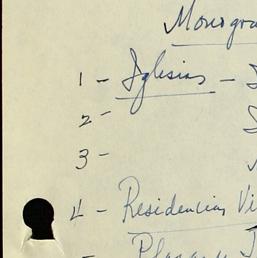 Monogra
1 - Iglesias -
2 -
3 -
4 - Residencias Vi
- Plazas y J